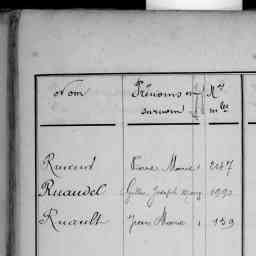 Nom Prénoms ou surnom Nos mles
Ruaud Pierre Marie 2147
Ruaudel Gilles Joseph Marie
Ruault Jean Marie 159